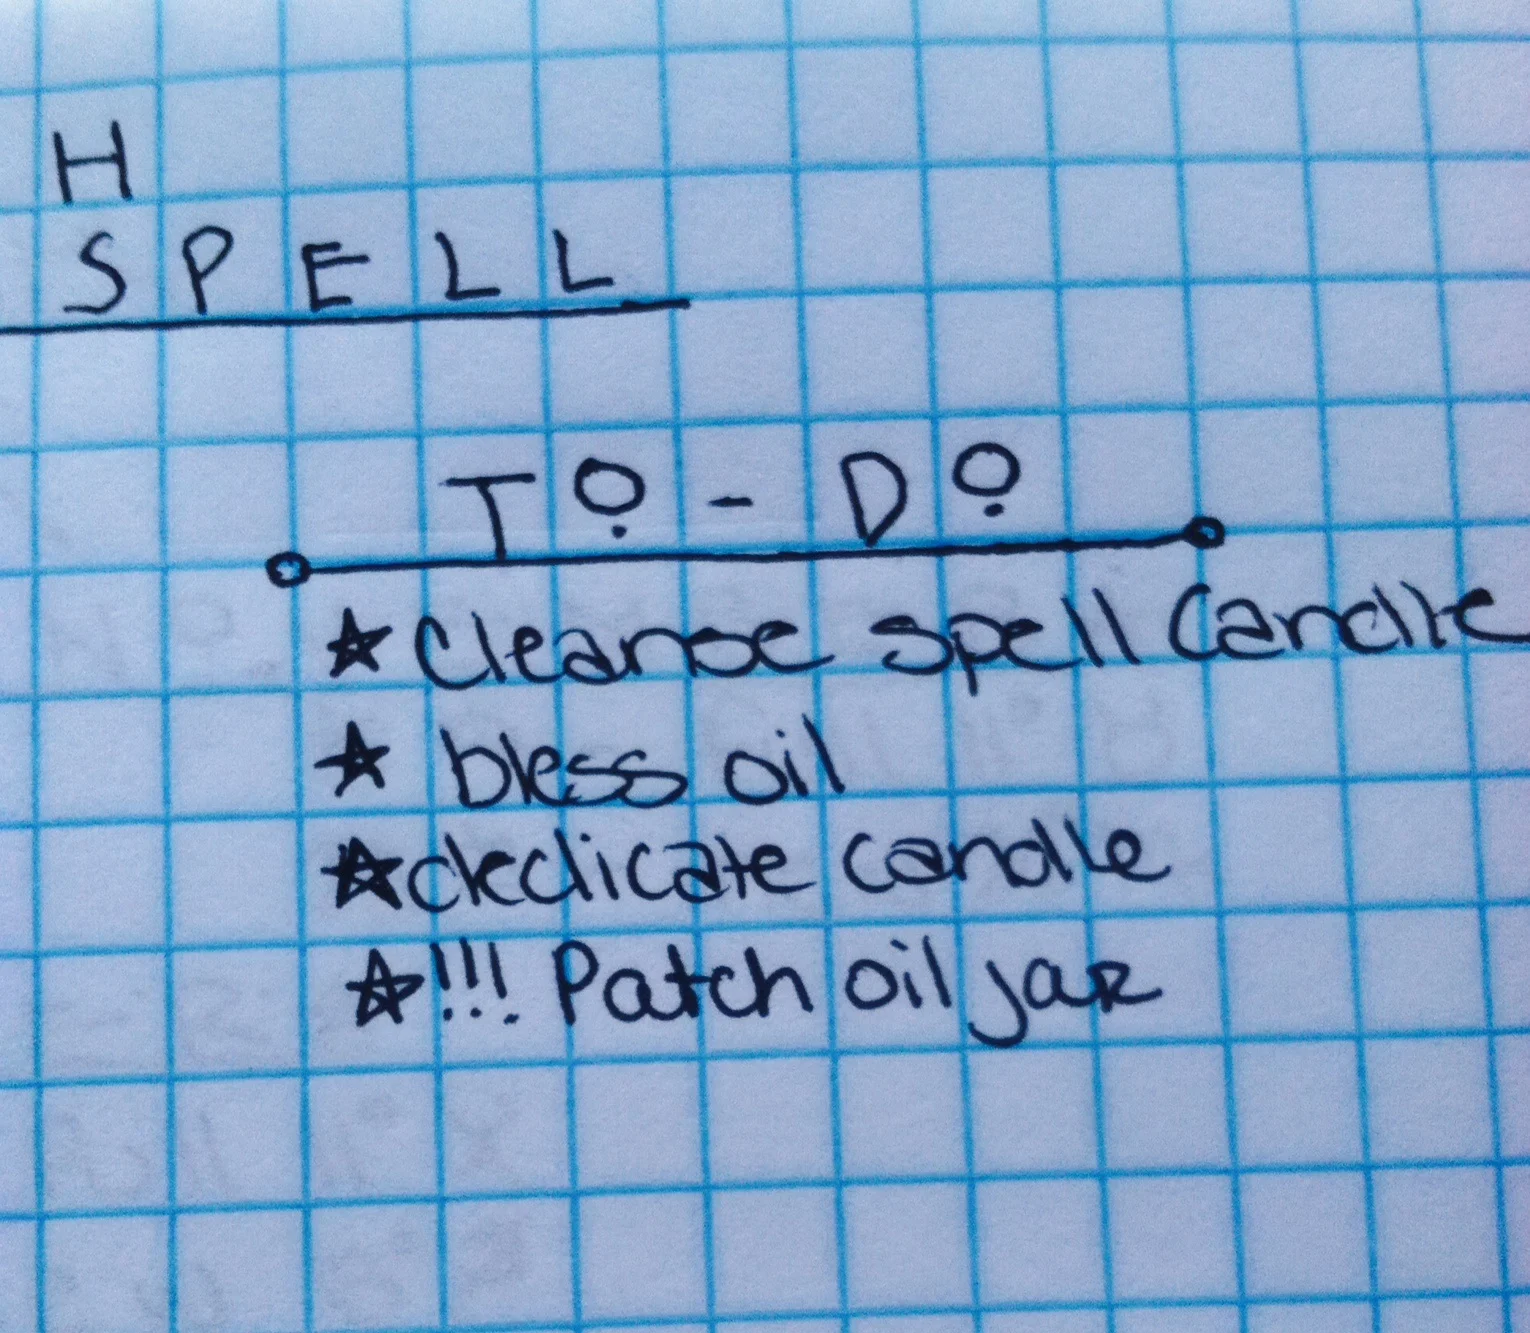 H
SPELL
TO - DO
☆ Cleanse spell Candle
☆ bless oil
☆ dedicate candle
☆ !!! Patch oil jar